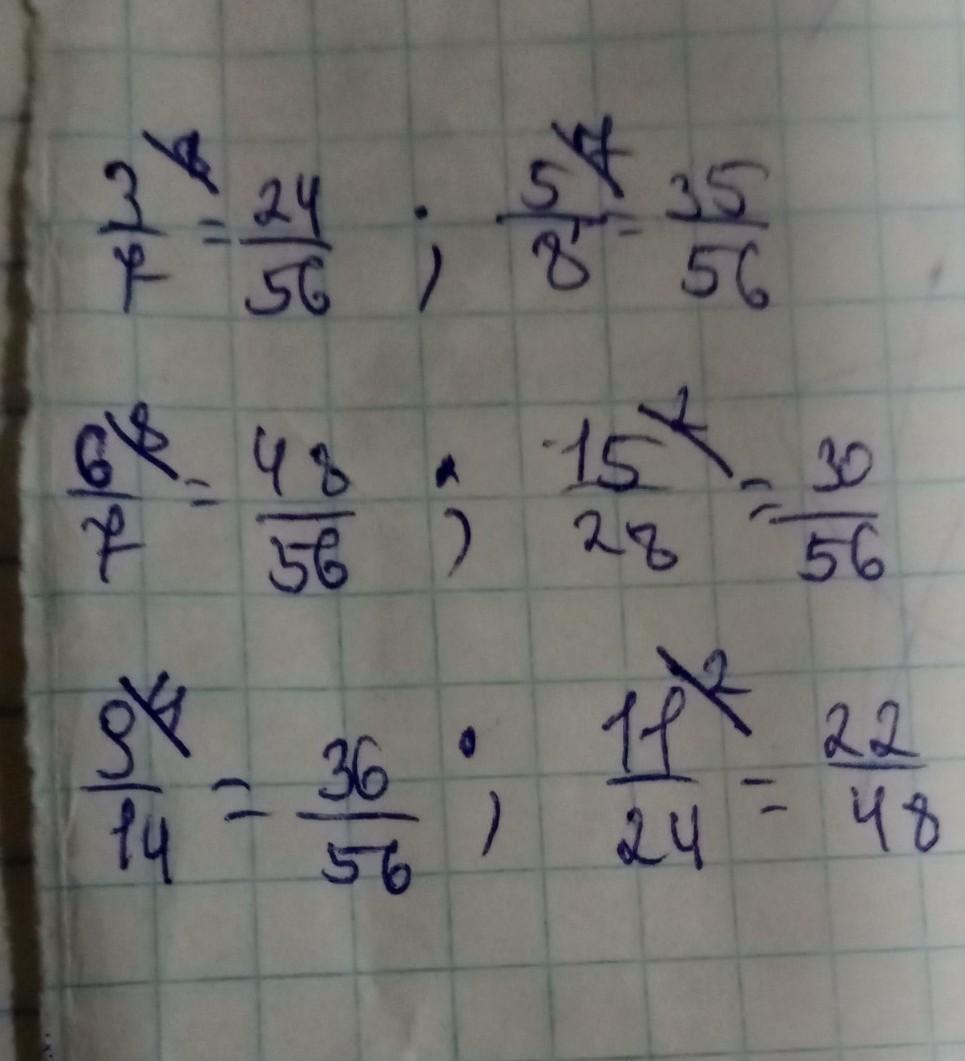 3/7 ⁸ = 24/56 ; 5/8 ⁷ = 35/56
6/7 ⁸ = 48/56 ; 15/28 ² = 30/56
9/14 ⁴ = 36/56 ; 11/24 ² = 22/48